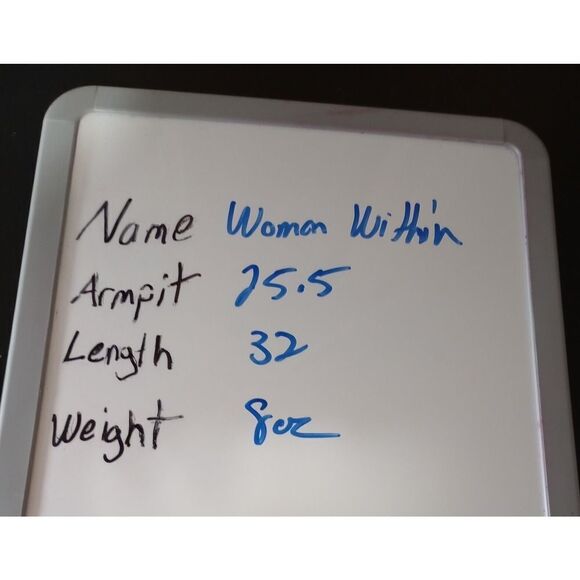 Name Woman Within
Armpit 25.5
Length 32
Weight 8oz